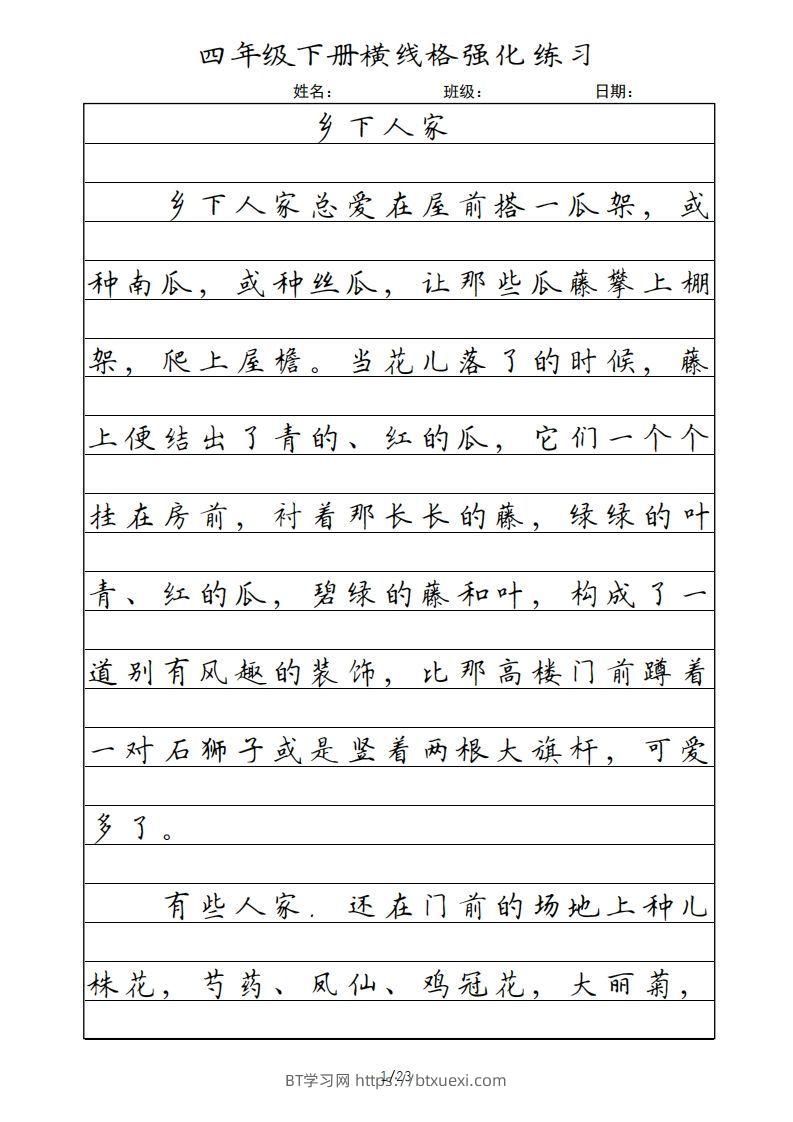 四年级下册横线格强化练习
姓名： 班级： 日期：
乡下人家
乡下人家总爱在屋前搭一瓜架，或
种南瓜，或种丝瓜，让那些瓜藤攀上棚
架，爬上屋檐。当花儿落了的时候，藤
上便结出了青的、红的瓜，它们一个个
挂在房前，衬着那长长的藤，绿绿的叶
青、红的瓜，碧绿的藤和叶，构成了一
道别有风趣的装饰，比那高楼门前蹲着
一对石狮子或是竖着两根大旗杆，可爱
多了。
有些人家．还在门前的场地上种儿
株花，芍药、凤仙、鸡冠花，大丽菊，
1/23
BT学习网 https://btxuexi.com